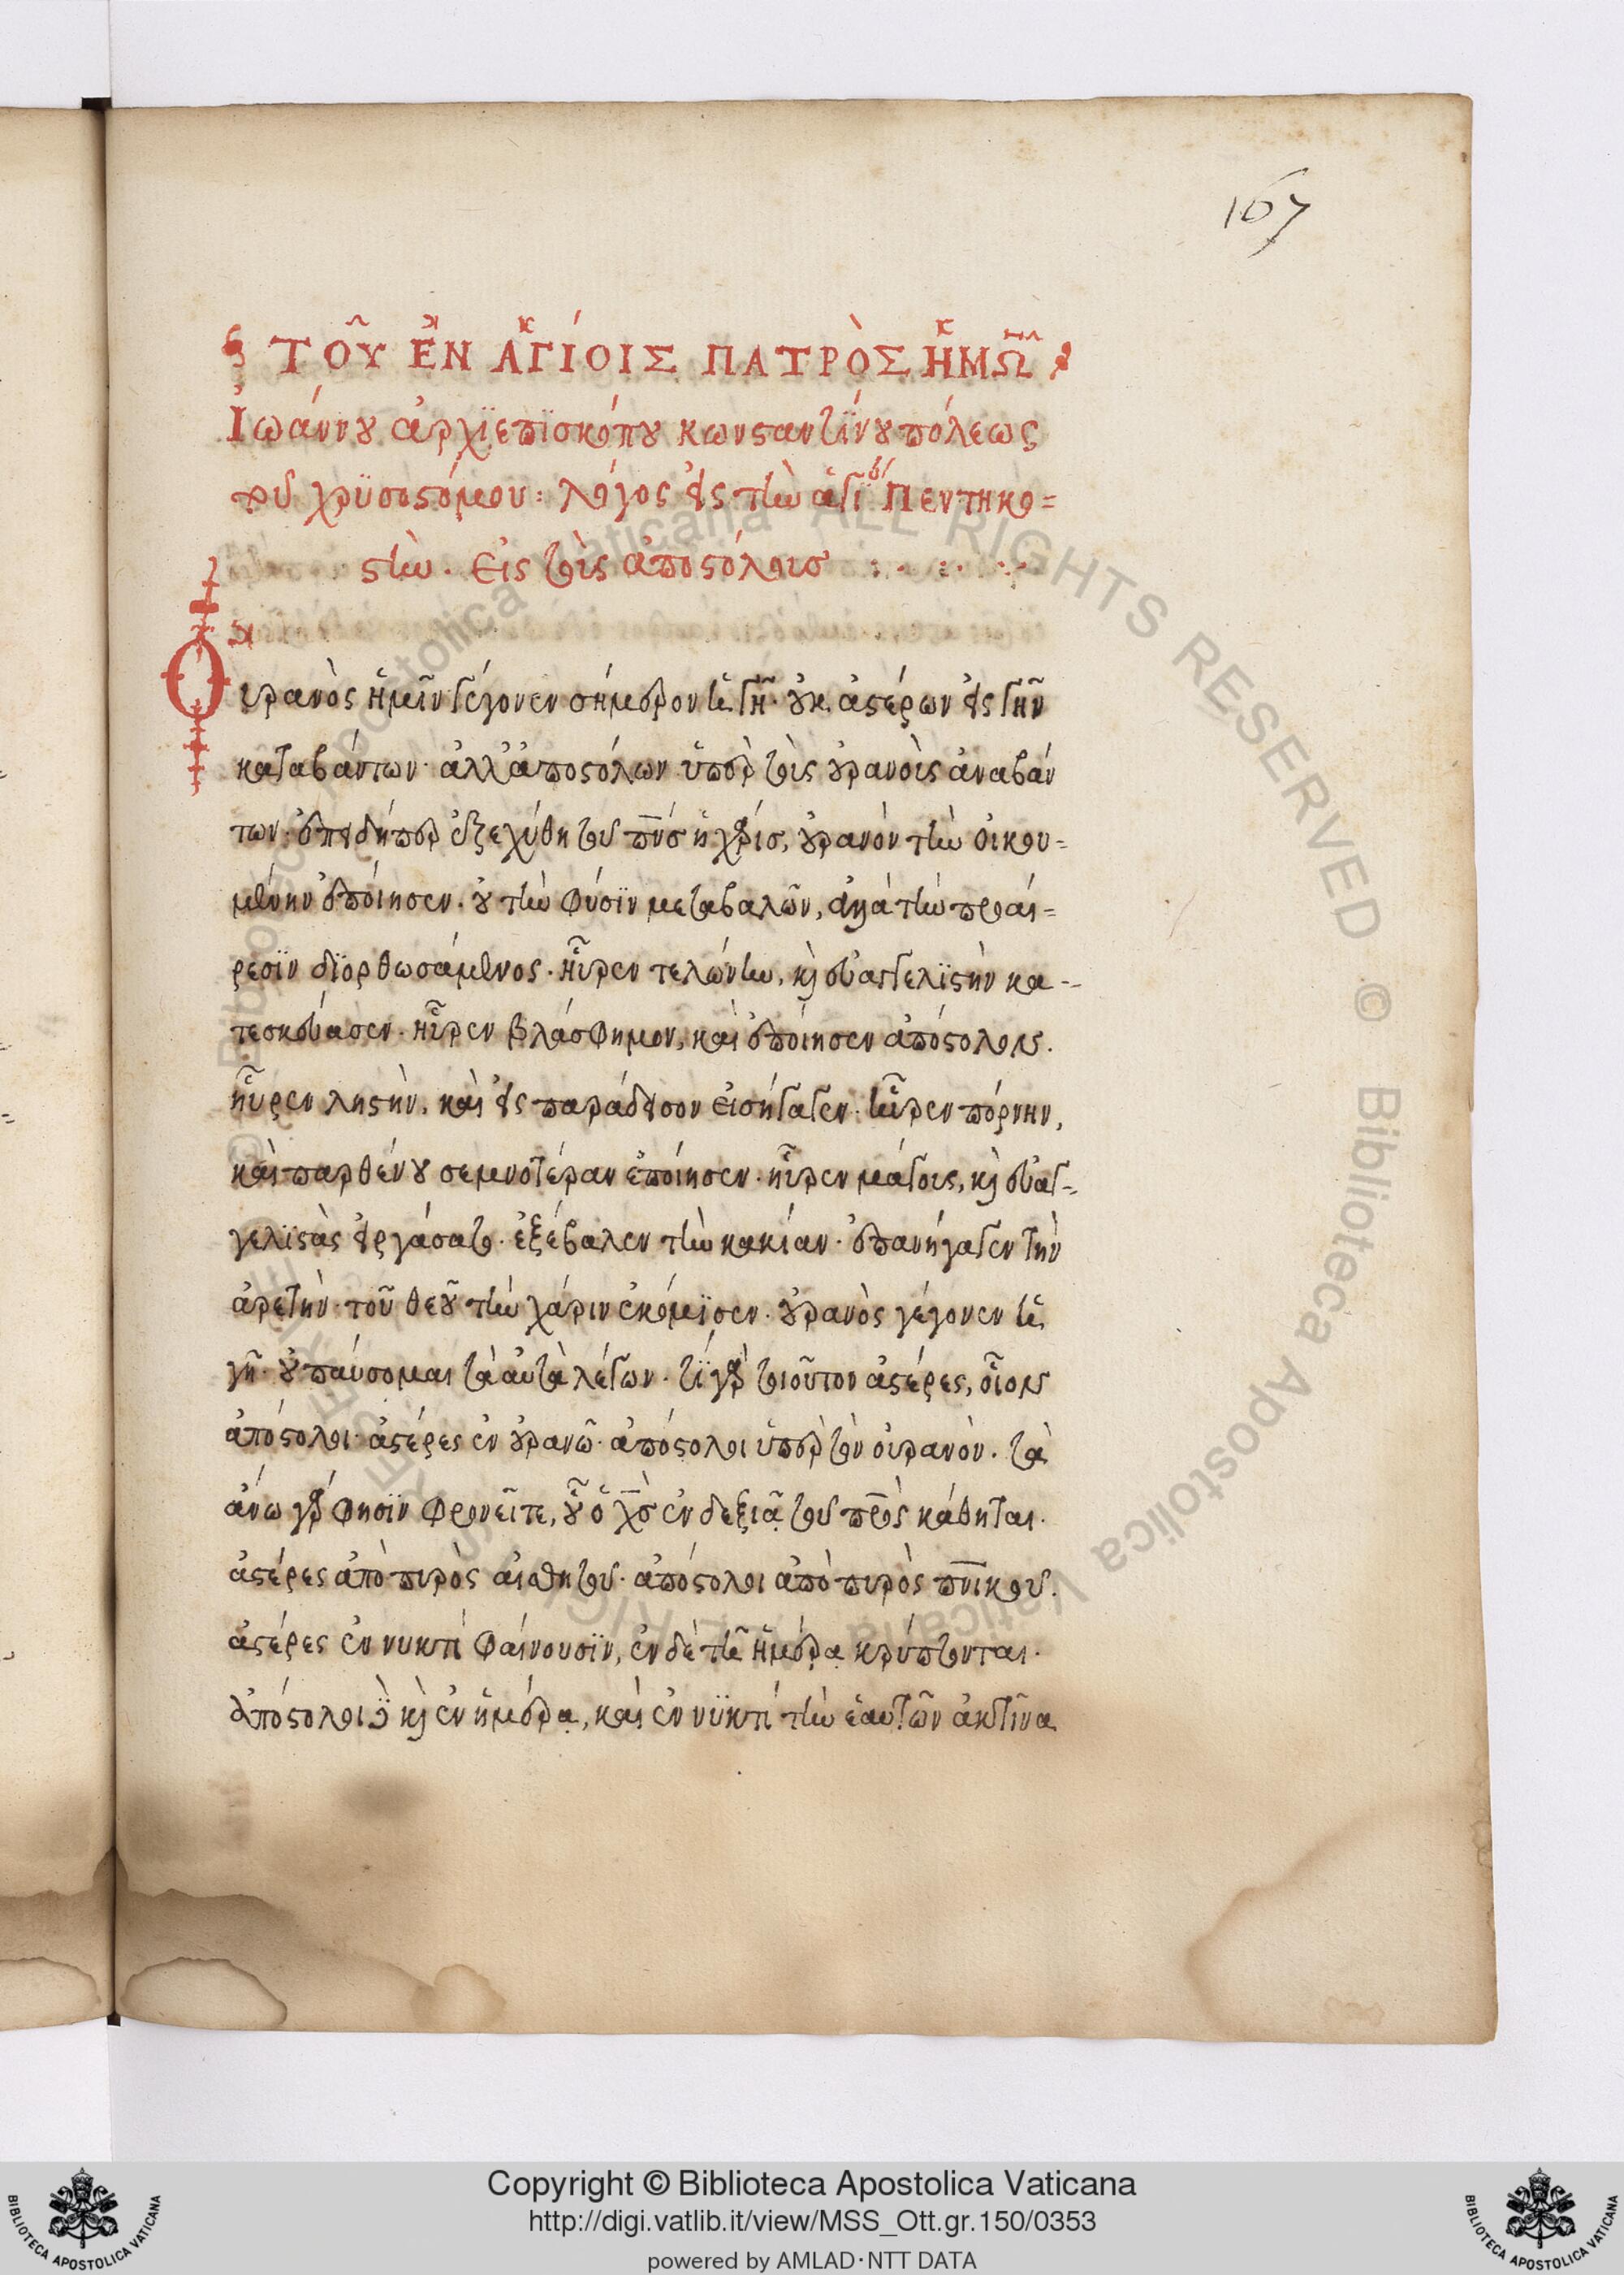 167
ΤΟῦ ἘΝ ἉΓΊΟΙΣ ΠΑΤΡῸΣ ἩΜῶ
Ἰωάννου ἀρχϊεπϊσκόπου κωνσταντϊνουπόλεως
τοῦ χρϋσοστόμου: λόγος εἰς τὴν ἁγί Πεντηκο=
στὴν. Εἰς τοὺς ἀποστόλους
Οὐρανὸς ἡμῖν γέγονεν σήμερον ἡ γῆ· οὐκ ἀστέρων εἰς γῆν
καταβάντων· ἀλλ' ἀποστόλων ὑπὲρ τοὺς οὐρανοὺς ἀναβάν
των· ἐπειδήπερ ἐξεχύθη τοῦ πνς ἡ χάρις, οὐρανὸν τὴν οἰκου=
μένην ἐποίησεν. οὐ τὴν φύσϊν μεταβαλῶν, ἀλλὰ τὴν προαί=
ρεσϊν δϊορθωσάμενος. ηὗρεν τελώνην, καὶ εὐαγγελϊστὴν κα--
τεσκεύασεν. ηὗρεν βλάσφημον, καὶ ἐποίησεν ἀπόστολον.
ηὗρεν ληστὴν, καὶ εἰς παράδεισον εἰσήγαγεν. ηὗρεν πόρνην,
καὶ παρθένου σεμνοτέραν ἐποίησεν. ηὗρεν μάγους, καὶ εὐαγ=
γελϊστὰς εἰργάσατο. ἐξέβαλεν τὴν κακίαν. ἐπανήγαγεν τὴν
ἀρετήν· τοῦ θεοῦ τὴν χάριν ἐκόμϊσεν. οὐρανὸς γέγονεν ἡ
γῆ. οὐ παύσομαι τὰ αὐτὰ λέγων. τϊ γὰρ τοιοῦτον ἀστέρες, οἷον
ἀπόστολοι· ἀστέρες ἐν οὐρανῶ· ἀπόστολοι ὑπὲρ τὸν οὐρανόν. τὰ
ἄνω γάρ φησϊν φρονεῖτε, οὗ ὁ χς ἐν δεξιᾷ τοῦ πρς κάθηται.
ἀστέρες ἀπὸ πυρὸς αἰσθητοῦ. ἀπόστολοι ἀπὸ πυρὸς πνικοῦ.
ἀστέρες ἐν νυκτὶ φαίνουσϊν, ἐν δὲ τῆ ἡμέρᾳ κρύπτονται.
ἀπόστολοι δὲ καὶ ἐν ἡμέρᾳ, καὶ ἐν νϋκτὶ τὴν ἑαυτῶν ἀκτῖνα
Copyright © Biblioteca Apostolica Vaticana
http://digi.vatlib.it/view/MSS_Ott.gr.150/0353
powered by AMLAD·NTT DATA
BIBLIOTECA APOSTOLICA VATICANA
BIBLIOTECA APOSTOLICA VATICANA
© Biblioteca Apostolica Vaticana ALL RIGHTS RESERVED © Biblioteca Apostolica Vaticana ALL RIGHTS RESERVED